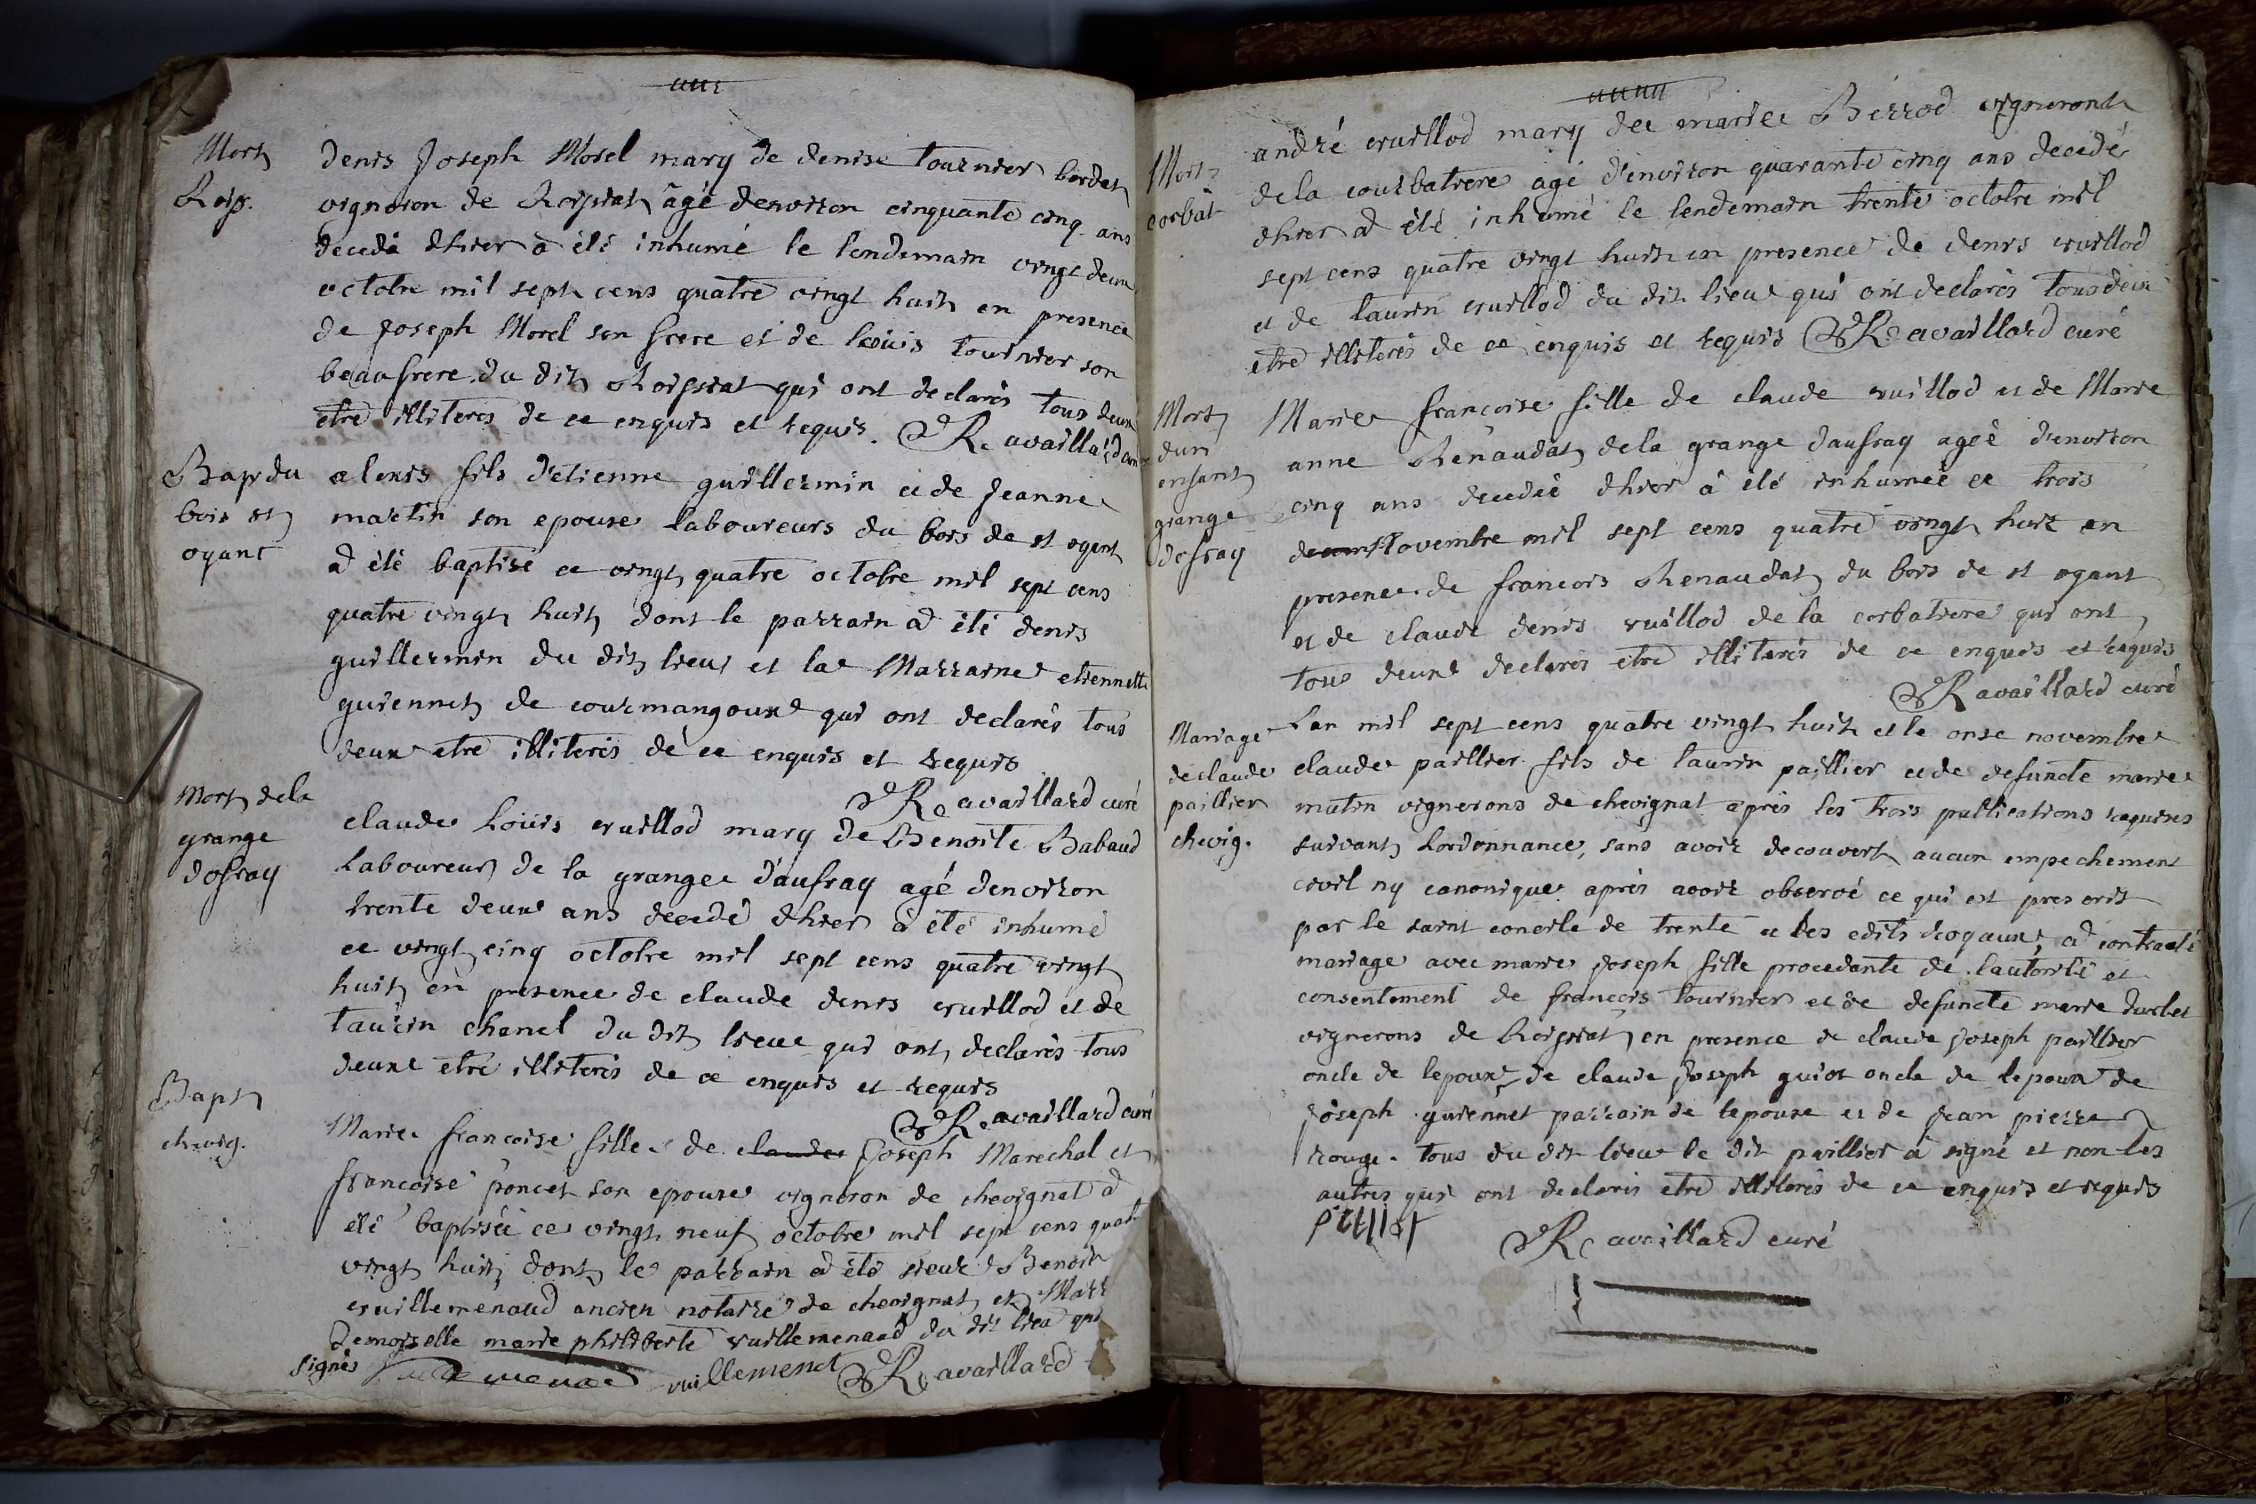 Mort
Roip.
Denis Joseph Morel mary de denise tournier bordet
vigneron de Roissiat âgé denviron cinquante cinq ans
decedé dhier à été inhumé le lendemain vingt deux
octobre mil sept cens quatre vingt huit en presence
de Joseph Morel son frere et de loüis tournier son
beaufrere du dit Roissiat qui ont declarés tous deux
etre illiterés de ce enquis et requis. Ravaillard curé
Bap du
bois st
oyant
alexis fils d'etienne guillermin et de Jeanne
martin son epouse laboureurs du bois de st oyent
a été baptisé ce vingt quatre octobre mil sept cens
quatre vingt huit dont le parrain a été denis
guillermin du dit lieu et la Marraine etiennette
guiennet de courmangoux qui ont declarés tous
deux etre illiterés de ce enquis et requis
Ravaillard curé
Mort dela
grange
dofray
claude Loüis vuillod mary de Benoite Babaud
Laboureur de la grange d'aufray agé denviron
trente deux ans decedé dhier à été inhumé
ce vingt cinq octobre mil sept cens quatre vingt
huit en presence de claude denis vuillod et de
taurin chanel du dit lieu qui ont declarés tous
deux etre illiterés de ce enquis et requis
Ravaillard curé
Bapt
chevig.
Marie francoise fille de claude Joseph Marechal et
francoise poncet son epouse vigneron de chevignat a
été baptisée ce vingt neuf octobre mil sept cens quat
vingt huit, dont le parrain a été sieur Benoit
vuillemenaud ancien notaire de chevignat et Marr
Demoiselle marie philiberte vuillemenaud du dit lieu qui
signés vuillemenot Ravaillard
Mort
corbat
andré vuillod mary de marie Berrod vigneront
dela courbatiere agé d'environ quarante cinq ans decedé
dhier a été inhumé le lendemain trente octobre mil
sept cens quatre vingt huit en presence de denis vuillod
et de taurin vuillod du dit lieu qui ont declarés tous deux
etre illiterés de ce enquis et requis Ravaillard curé
Mort
dun
enfant
grange
dofray
Marie françoise fille de claude vuillod et de Marie
anne Renaudat dela grange daufray ageé d'environ
cinq ans decedeé dhier à été inhumeé ce trois
Novembre mil sept cens quatre vingt huit en
presence de francois Renaudat du bois de st oyant
et de claude denis vuillod de la corbatiere qui ont
tous deux declarés etre illiterés de ce enquis et requis
Ravaillard curé
Mariage
de claude
paillier
chevig.
Lan mil sept cens quatre vingt huit et le onse novembre
claude paillier fils de taurin paillier et de defuncte marie
matin vignerons de chevignat après les trois publications requises
suivant Lordonnance, sans avoir decouvert aucun empechement
civil ny canonique après avoir observé ce qui est prescrit
par le saint concile de trente et les edits Royaux, a contracté
mariage avec marie Joseph fille procedante de l'autorité et
consentement de françois tournier et de defuncte marie
vignerons de Roissiat en presence de claude Joseph paillier
oncle de lepoux, de claude Joseph guiot oncle de lepoux de
Joseph guiennet parrain de lepouse et de Jean pierre
Rouge tous du dit lieu le dit paillier a signé et non les
autres qui ont declarés etre illiterés de ce enquis et requis
Ravaillard curé